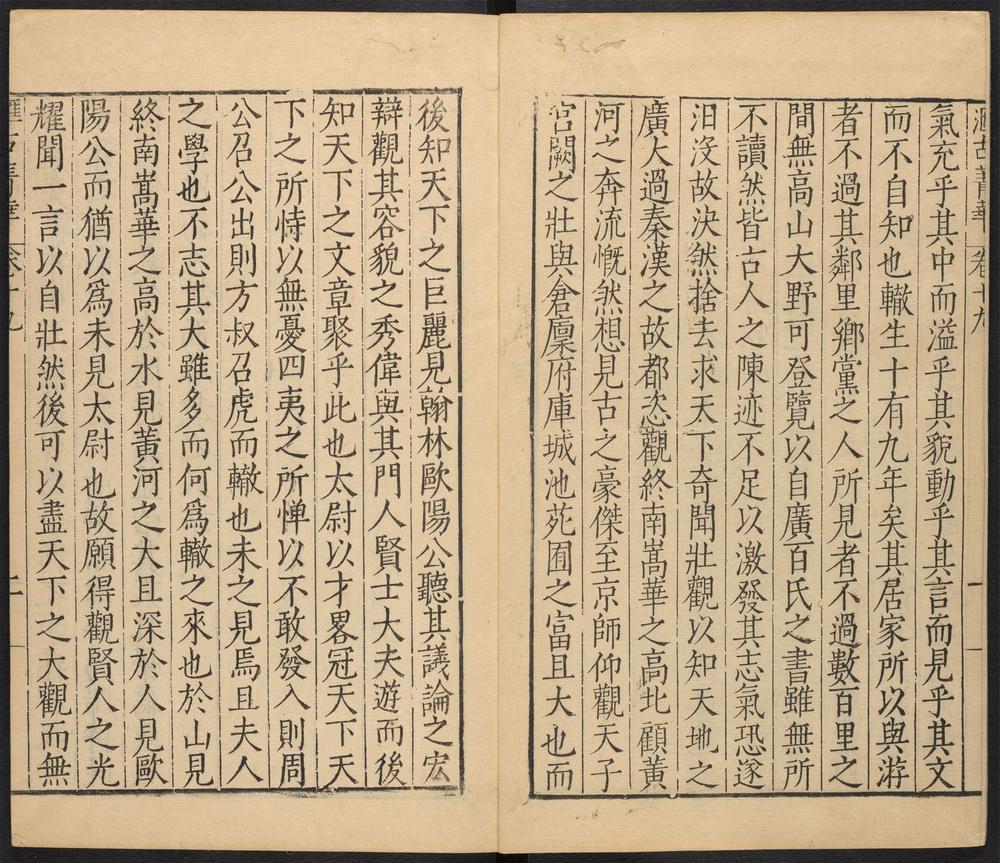 涵古菁華 卷十九 一
氣充乎其中而溢乎其貌動乎其言而見乎其文
而不自知也轍生十有九年矣其居家所以與游
者不過其鄰里鄉黨之人所見者不過數百里之
間無高山大野可登覽以自廣百氏之書雖無所
不讀然皆古人之陳迹不足以激發其志氣恐遂
汨沒故決然捨去求天下奇聞壯觀以知天地之
廣大過秦漢之故都恣觀終南嵩華之高北顧黃
河之奔流慨然想見古之豪傑至京師仰觀天子
宮闕之壯與倉廩府庫城池苑囿之富且大也而
後知天下之巨麗見翰林歐陽公聽其議論之宏
辯觀其容貌之秀偉與其門人賢士大夫遊而後
知天下之文章聚乎此也太尉以才畧冠天下天
下之所恃以無憂四夷之所憚以不敢發入則周
公召公出則方叔召虎而轍也未之見焉且夫人
之學也不志其大雖多而何爲轍之來也於山見
終南嵩華之高於水見黃河之大且深於人見歐
陽公而猶以爲未見太尉也故願得觀賢人之光
耀聞一言以自壯然後可以盡天下之大觀而無
卷十九 二